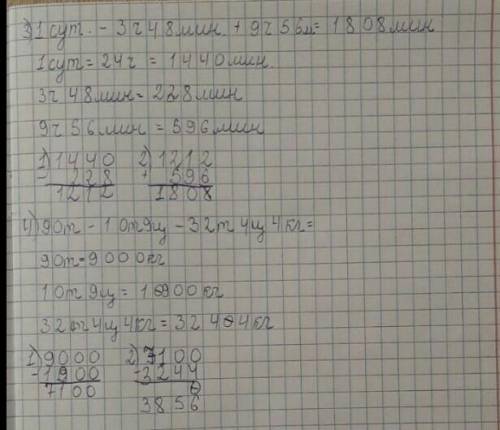 3) 1 сут. - 3ч 48 мин. + 9ч 56м = 1808 мин
1сут = 24ч = 1440 мин
3ч 48 мин = 228 мин
9ч 56 мин = 596 мин
1) 1440 2) 1212
- 228 + 596
1212 1808
4) 90т - 10т 9ц - 32т 4ц 4кг =
90т = 9000кг
10т 9ц = 10900кг
32т 4ц 4кг = 32404кг
1) 9000 2) 7100
- 1900 - 3244
7100
3856